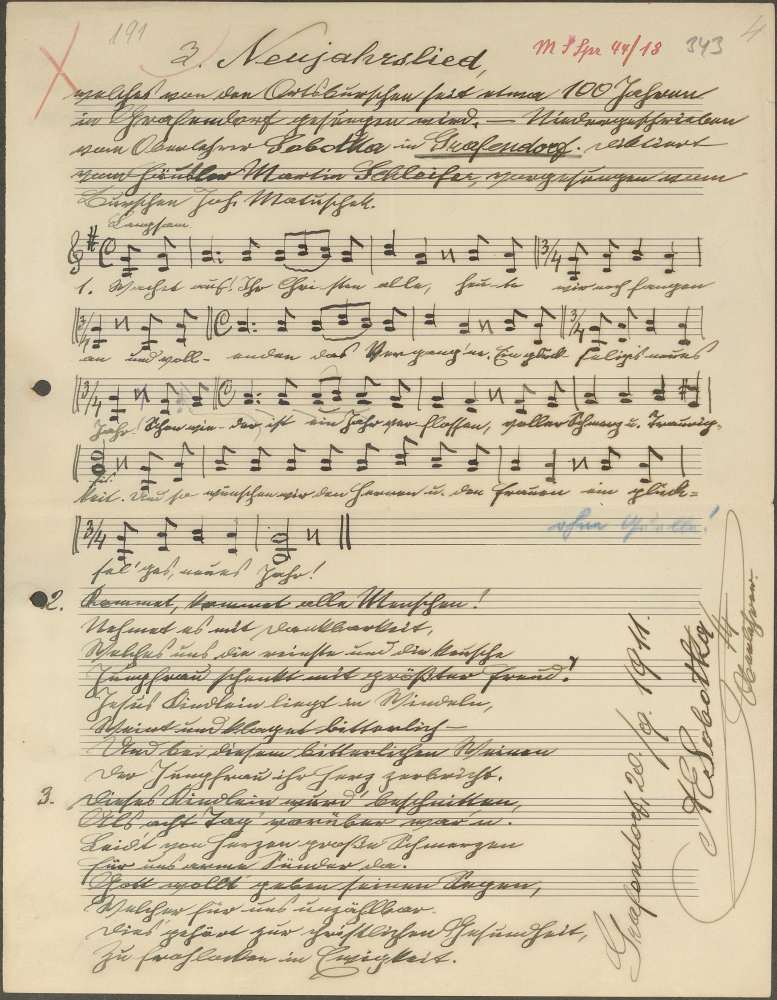 191
4
3. Neujahrslied,
M S Spr 44/18 343
welches von den Ortsburschen seit etwa 100 Jahren
in Grafendorf gesungen wird. — Niedergeschrieben
vom Oberlehrer Sobotka in Grafendorf. diktiert
vom Häusler Martin Schleifer, vorgesungen vom
Burschen Joh. Matuschek.
Langsam
1. Wachet auf! Ihr Christen alle, heute wir noch fangen
an und vollenden das Vergang'ne. Ein glücksel'ges neues
Jahr! Schon wieder ist ein Jahr verflossen, voller Schmerz u. Traurig-
keit. Und so wünschen wir den Herren u. den Frauen ein glück-
sel'ges, neues Jahr!
ohne Quelle!
2. Kommet, kommet alle Menschen!
Nehmet es mit Dankbarkeit,
Welches uns die reinste und die keusche
Jungfrau schenkt mit größter Freud'.
Jesus Kindlein liegt in Windeln,
Weint und klaget bitterlich –
Und bei diesem bitterlichen Weinen
Der Jungfrau ihr Herz zerbricht.
3. Dieses Kindlein wurd' beschnitten,
Als acht Tag' vorüber war'n.
Leid't von Herzen große Schmerzen
für uns arme Sünder da.
Gott wollt' geben seinen Segen,
Welcher für uns unzählbar.
Dies gehört zur christlichen Gesundheit,
Zu frohlocken in Ewigkeit.
Grafendorf, 20./9. 1911.
Sobotka
Oberlehrer.